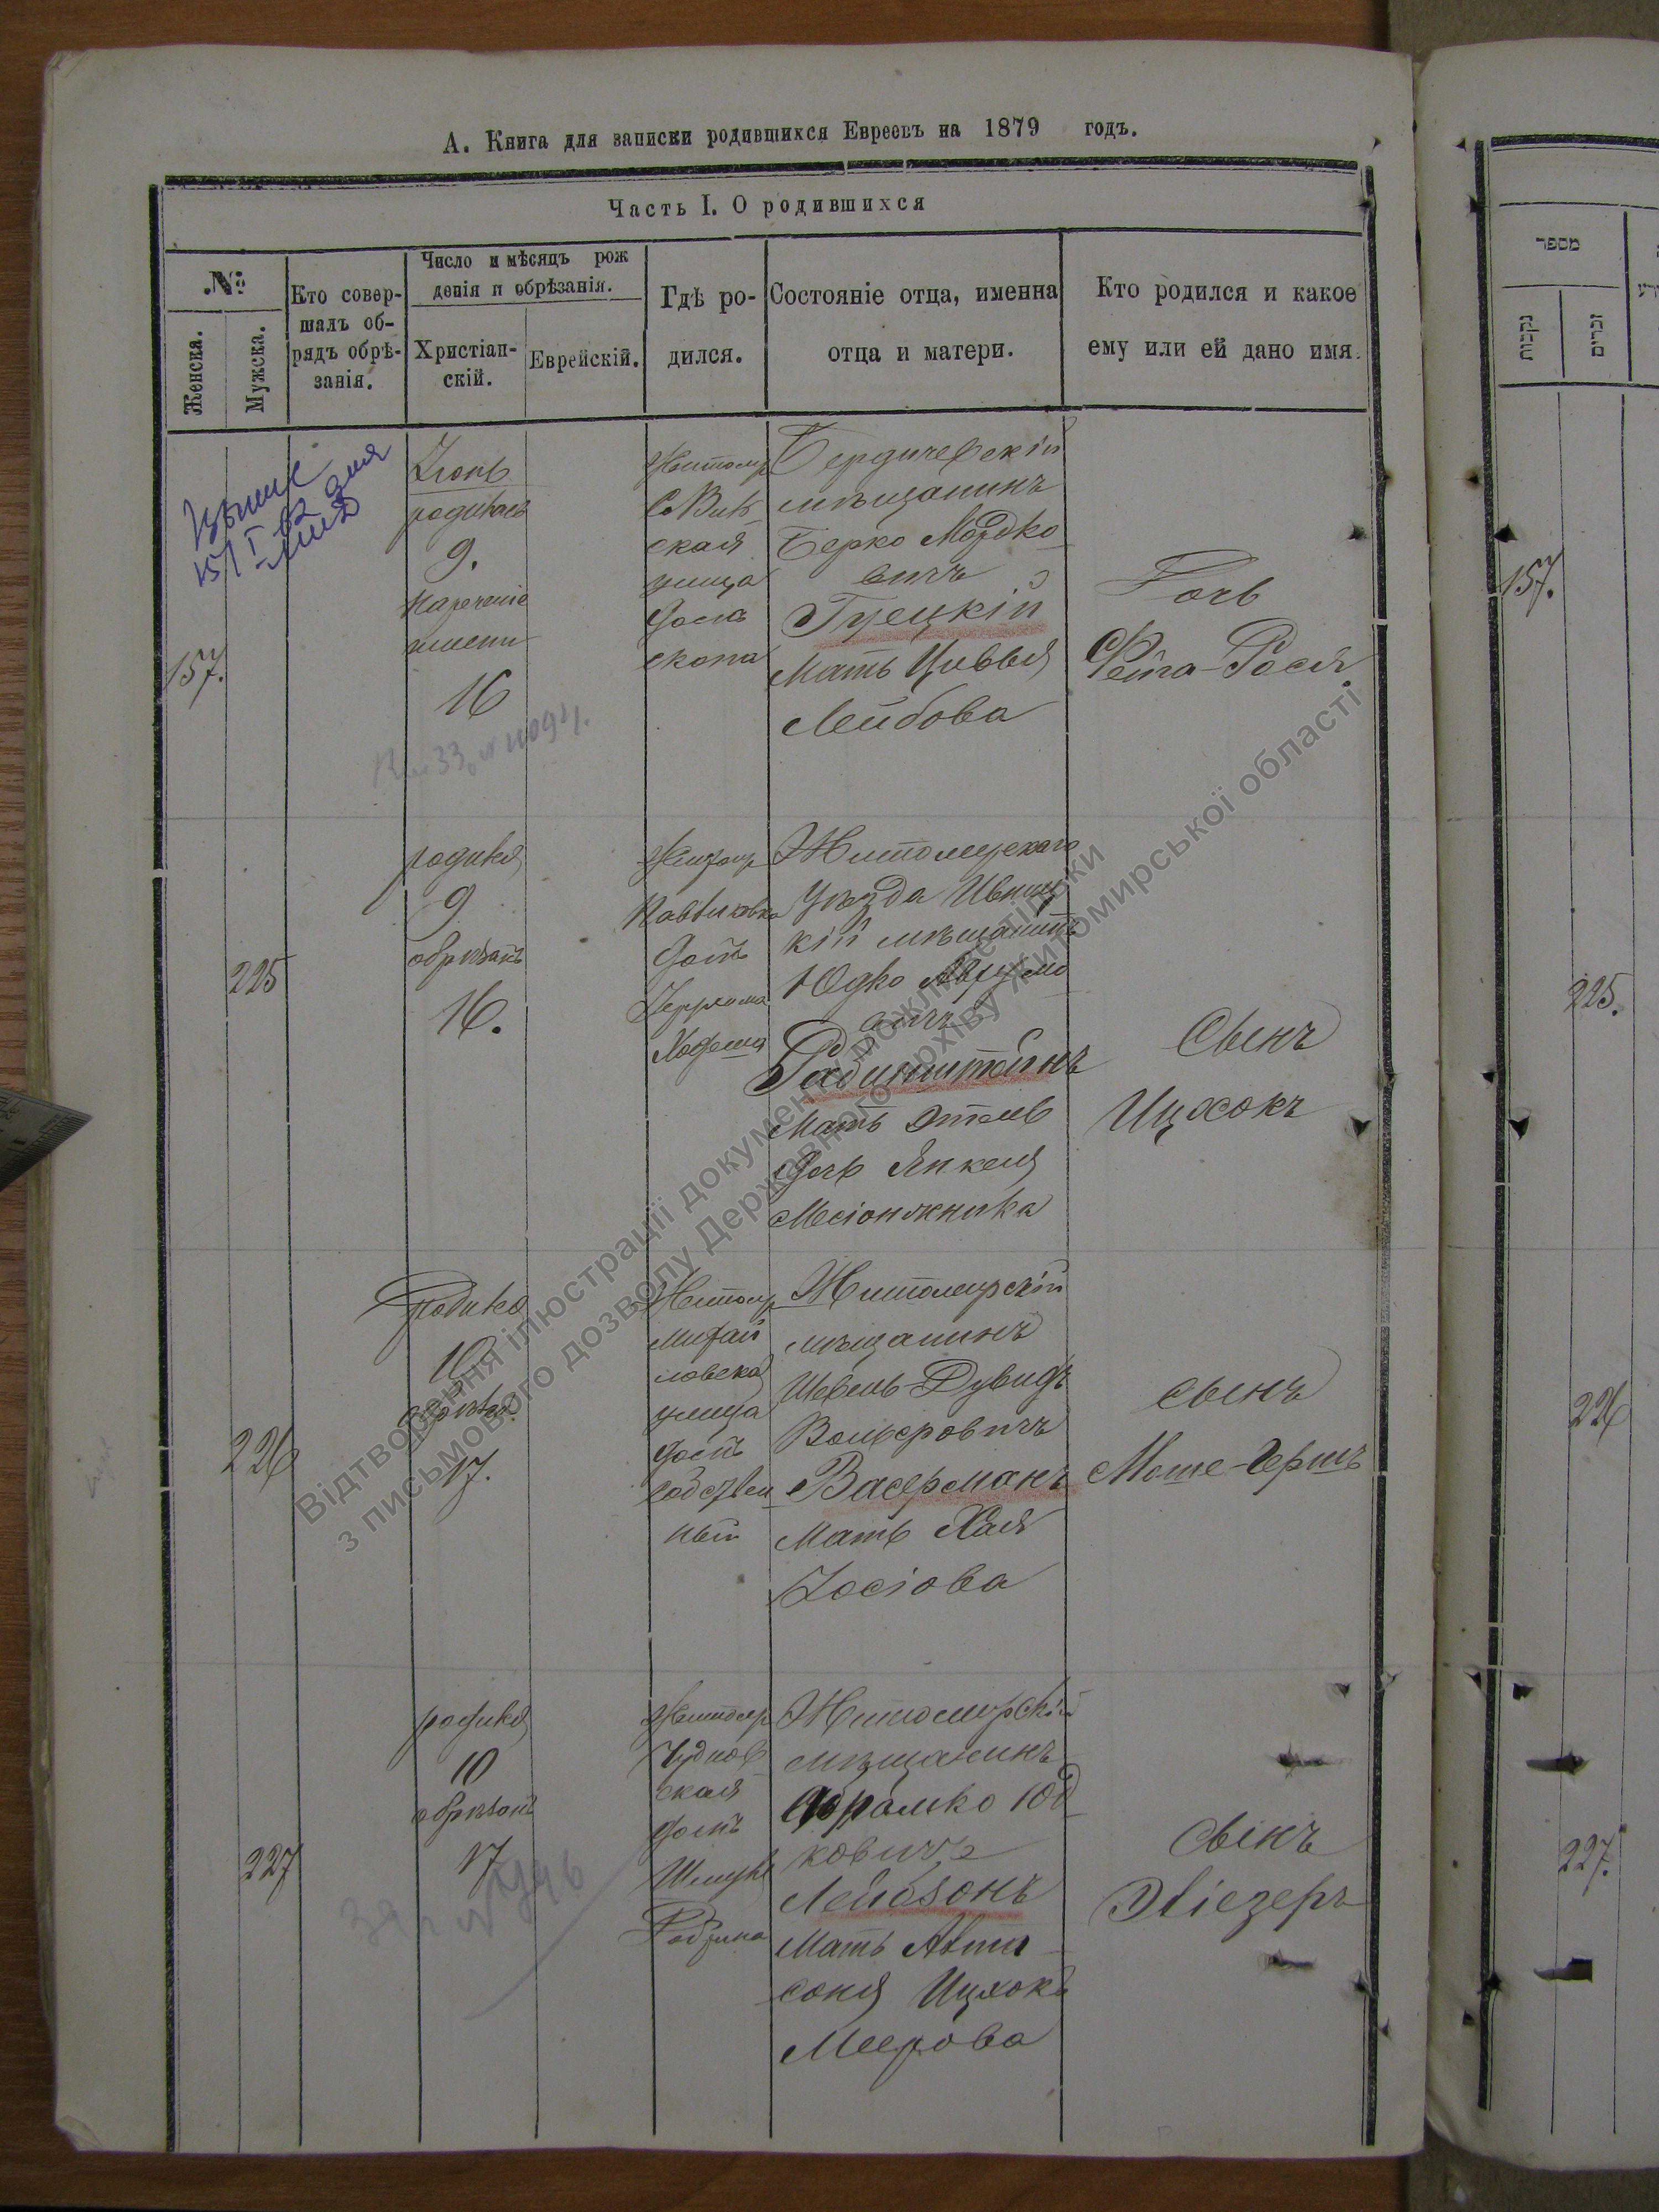 А. Книга для записки родившихся Евреевъ на 1879 годъ.
Часть I. О родившихся
№
Женска.
Мужска.
Кто совер-
шалъ об-
рядъ обрѣ-
занія.
Число и мѣсяцъ рож
денія и обрѣзанія.
Христіан-
скій.
Еврейскій.
Гдѣ ро-
дился.
Состояніе отца, именна
отца и матери.
Кто родился и какое
ему или ей дано имя.
157.
Іюнь
родилась
9.
нареченіе
имени
16
Житомир
ская
улица
домъ
Бердичевскій
мѣщанинъ
Берко Мордко
вичъ
Гуецкій
Мать Цивья
Лейбова
Дочь
Фейга-Рося
225
родился
9
обрѣзанъ
16.
Житомир
домъ
Житомирскаго
уѣзда Ивниц
кій мѣщанинъ
Юдко Аврумо
вичъ
Рабинштейнъ
Мать Этель
дочь Янкеля
Сынъ
Ицхокъ
226
родился
10
обрѣзан
17.
Житомир
Михай
ловская
улица
домъ
собствен
ный
Житомирскій
мѣщанинъ
Шевель-Дувидъ
Вольфовичъ
Васерманъ
Мать Хая
Іосіова
Сынъ
Моше-Гершъ
227
родился
10
обрѣзанъ
17
Житомир
Чуднов
ская
домъ
Житомирскій
мѣщанинъ
Абрамко Юд
ковичъ
Лейбзонъ
Мать
Соня Ицхокъ
Меерова
Сынъ
Эліезеръ
מספר
נקבות
זכרים
157.
225.
226
227.
Відтворення ілюстрації документу можливе тільки
з письмового дозволу Державного архіву Житомирської області